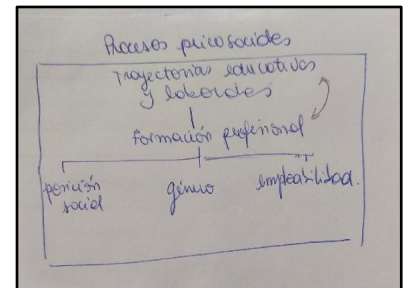 Procesos psicosociales
Trayectorias educativas
y laborales
formación profesional
posición género empleabilidad.
social